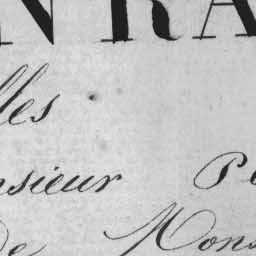 NRA
lles
nsieur Pe
De Mons